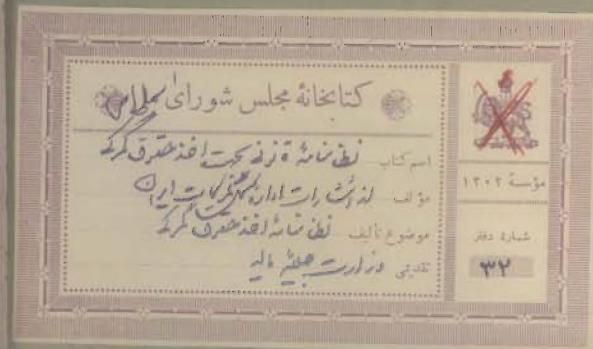 کتابخانهٔ مجلس شورای ملی
اسم کتاب نظامنامهٔ تعرفه جهت اخذ حقوق گمرکی
مؤلف از انتشارات ادارهٔ کل گمرکات ایران
موضوع تألیف نظامنامه اخذ حقوق گمرک
تقدیمی وزارت جلیلهٔ مالیه
مؤسسهٔ ۱۳۰۲
شمارهٔ دفتر
۳۲